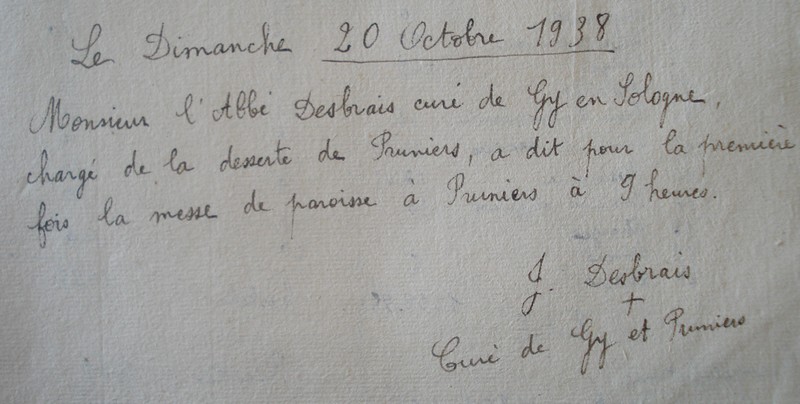 Le Dimanche 20 Octobre 1938
Monsieur l'Abbé Desbrais curé de Gy en Sologne,
chargé de la desserte de Pruniers, a dit pour la première
fois la messe de paroisse à Pruniers à 9 heures.
J. Desbrais
+
Curé de Gy et Pruniers